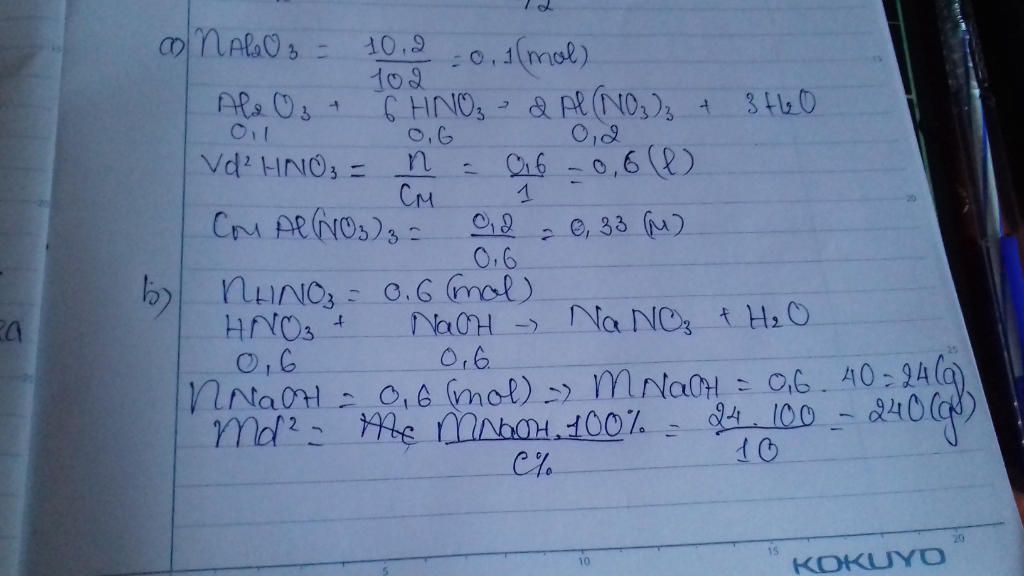 12
a) nAl2O3 = 10.2/102 = 0,1(mol)
Al2O3 + 6HNO3 → 2Al(NO3)3 + 3H2O
0,1 0,6 0,2
Vd² HNO3 = n/CM = 0,6/1 = 0,6 (l)
CM Al(NO3)3 = 0,2/0,6 = 0,33 (M)
b) nHNO3 = 0.6 (mol)
HNO3 + NaOH → NaNO3 + H2O
0,6 0,6
nNaOH = 0,6 (mol) => mNaOH = 0,6 . 40 = 24(g)
md² = mNaOH.100%/C% = 24.100/10 = 240(g)
5 10 15 20
KOKUYO